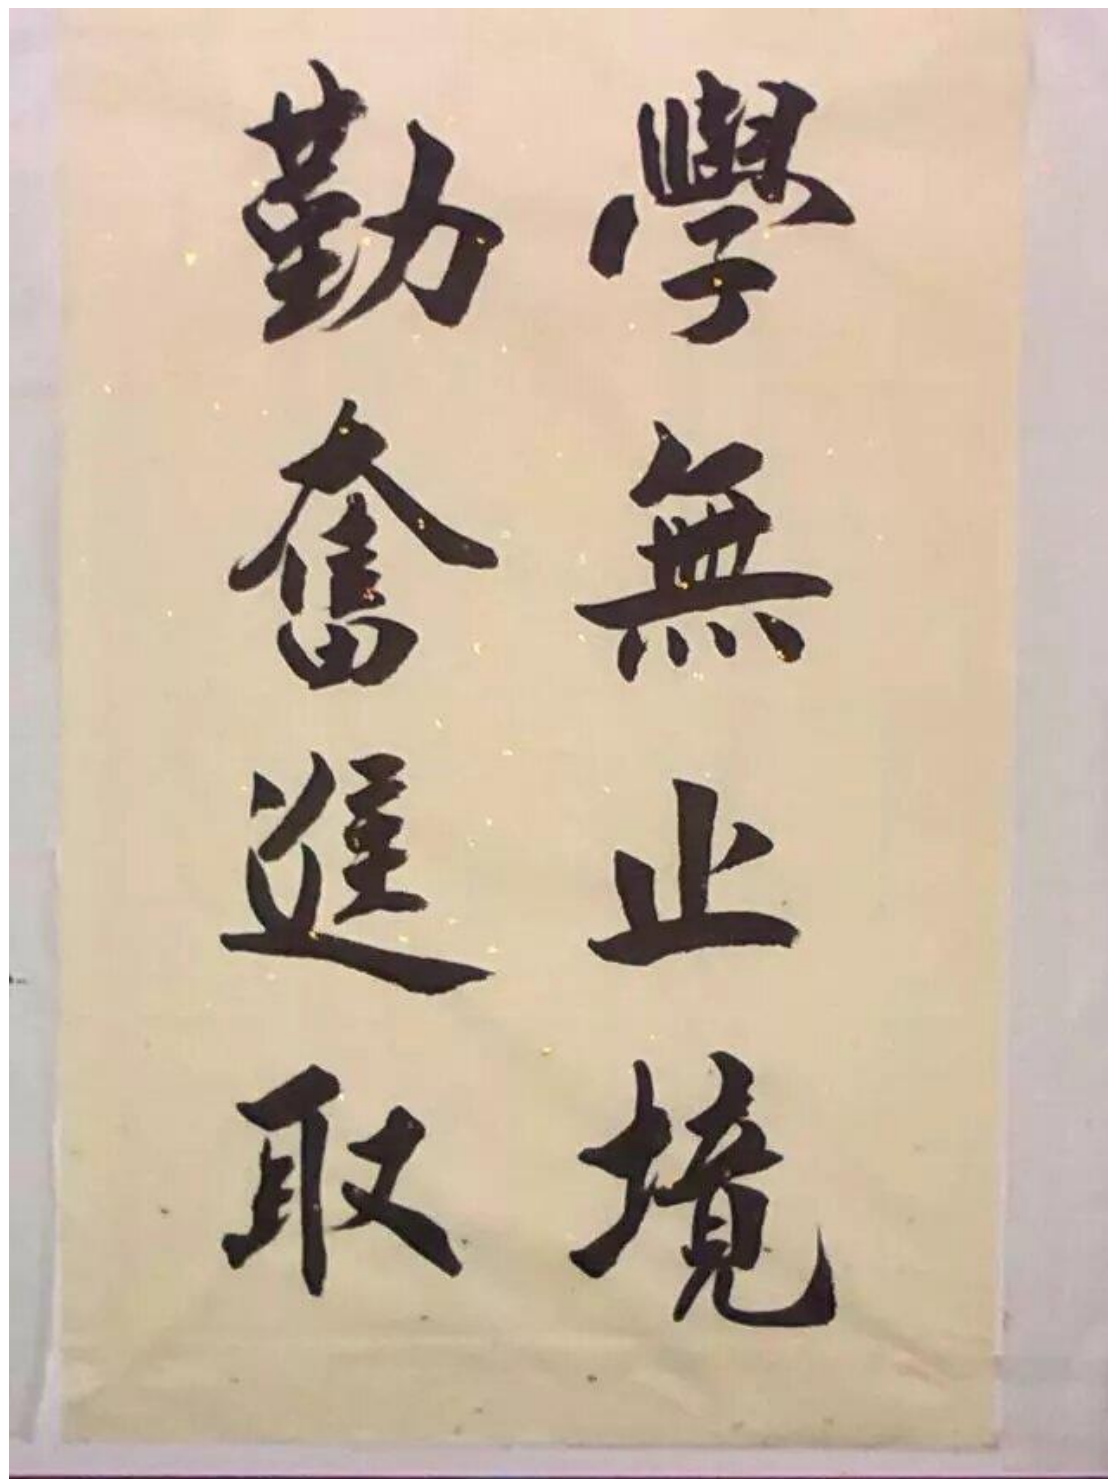 學無止境
勤奮進取